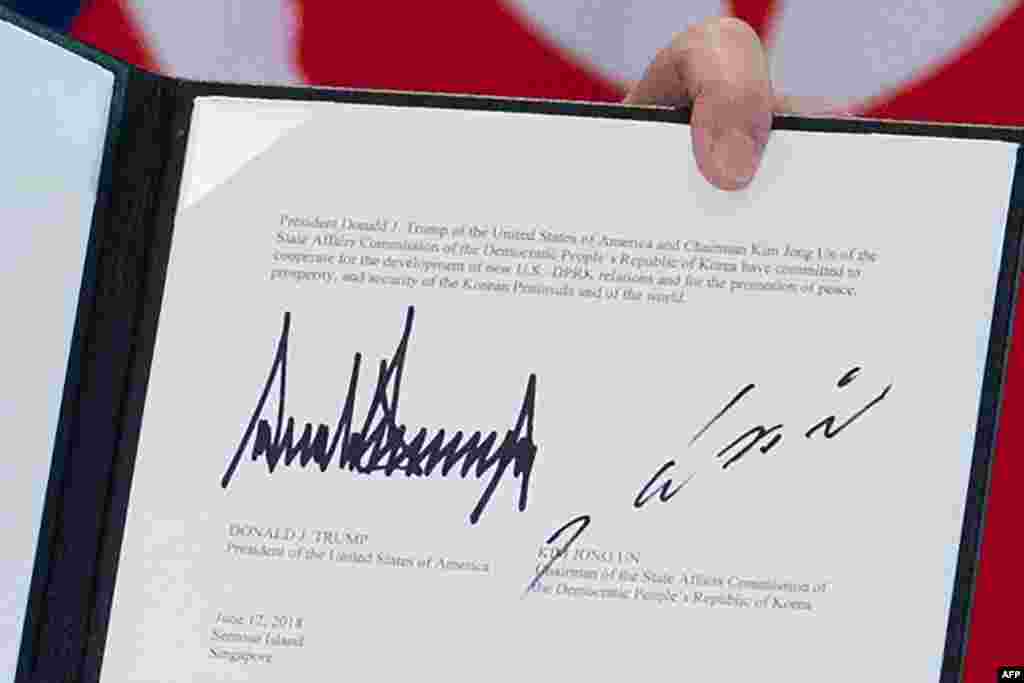 President Donald J. Trump of the United States of America and Chairman Kim Jong Un of the
State Affairs Commission of the Democratic People's Republic of Korea have committed to
cooperate for the development of new U.S.-DPRK relations and for the promotion of peace,
prosperity, and security of the Korean Peninsula and of the world.
DONALD J. TRUMP
President of the United States of America
KIM JONG UN
Chairman of the State Affairs Commission of
the Democratic People's Republic of Korea
June 12, 2018
Sentosa Island
Singapore
AFP